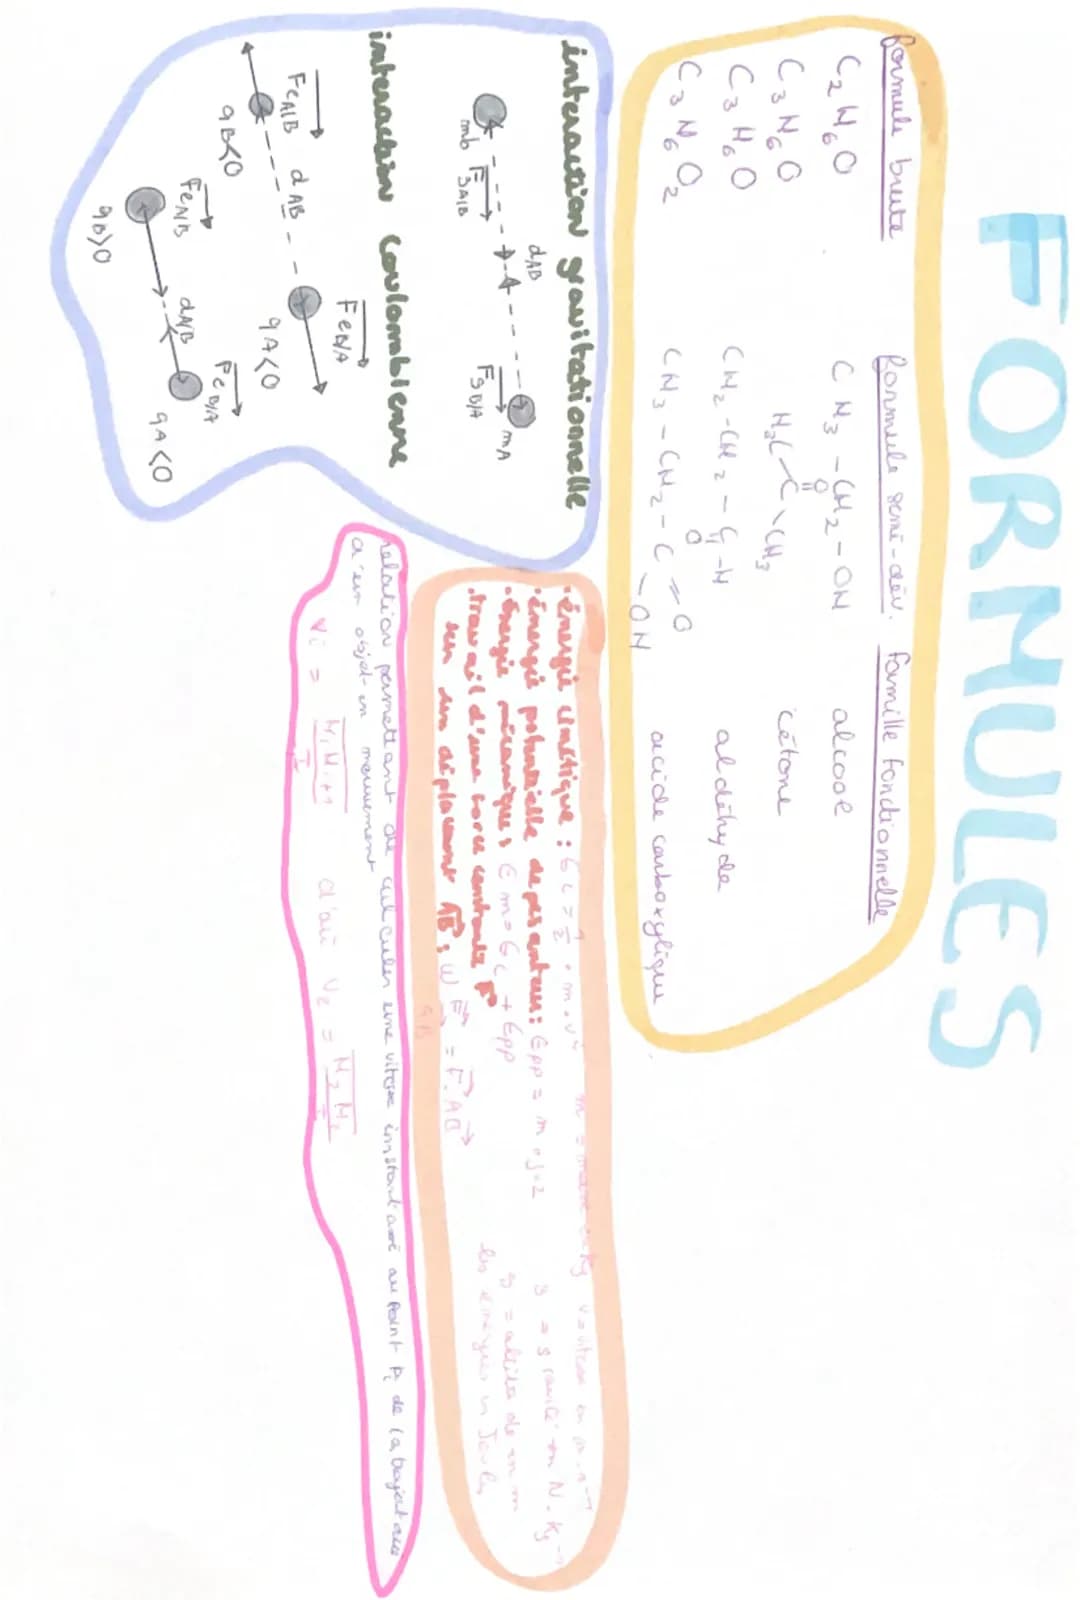 FORMULES
formule brute formule semi-dév. famille fonctionnelle
C₂H₆O CH₃-CH₂-OH alcool
C₃H₆O H₃C-C-CH₃ cétone
O
C₃H₆O CH₂-CH₂-C-H aldéhyde
O
C₃H₆O₂ CH₃-CH₂-C=O acide carboxylique
-OH
interaction gravitationnelle
dAB
mb FgA/B FgB/A mA
interaction Coulombienne
FeA/B dAB FeB/A
qB<0 qA<0
FeA/B dA/B FeB/A
qB>0 qA<0
énergie cinétique : Ec = 1/2 · m · v² m = masse en kg v = vitesse en m.s⁻¹
énergie potentielle de pesanteur : Epp = m · g · z g = gravité en N.kg⁻¹
énergie mécanique : Em = Ec + Epp altitude en m
travail d'une force constante F les énergies en Joules
sur un déplacement AB : W F = F. AB
AB
relation permettant de calculer une vitesse instantané au point Pᵢ de la trajectoire
d'un objet en mouvement
vᵢ = MᵢMᵢ₊₁ / T d'où v₂ =